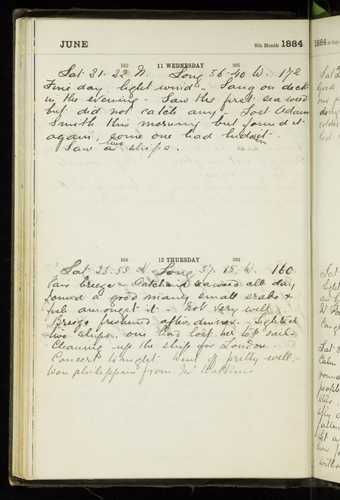 JUNE 6th Month 1884
163 11 WEDNESDAY 203
Lat. 21.22 N. Long 36.40 W. 172
Fine day light winds. Sang on deck
in the evening. Saw the first sea weed
but did not catch any. Lost Adam
Smith this morning but found it
again, some one had hidden
Saw five ships.
164 12 THURSDAY 202
Lat 23.53 N Long 37.15 W. 160
Fair breeze. Catching seaweed all day
found a good many small crabs &
fish amongst it. Not very well
Breeze freshened after dinner. Sighted
five ships. one had lost her top sails
Cleaning up the ship for London
Concert tonight went off pretty well.
Won philippine from Mr